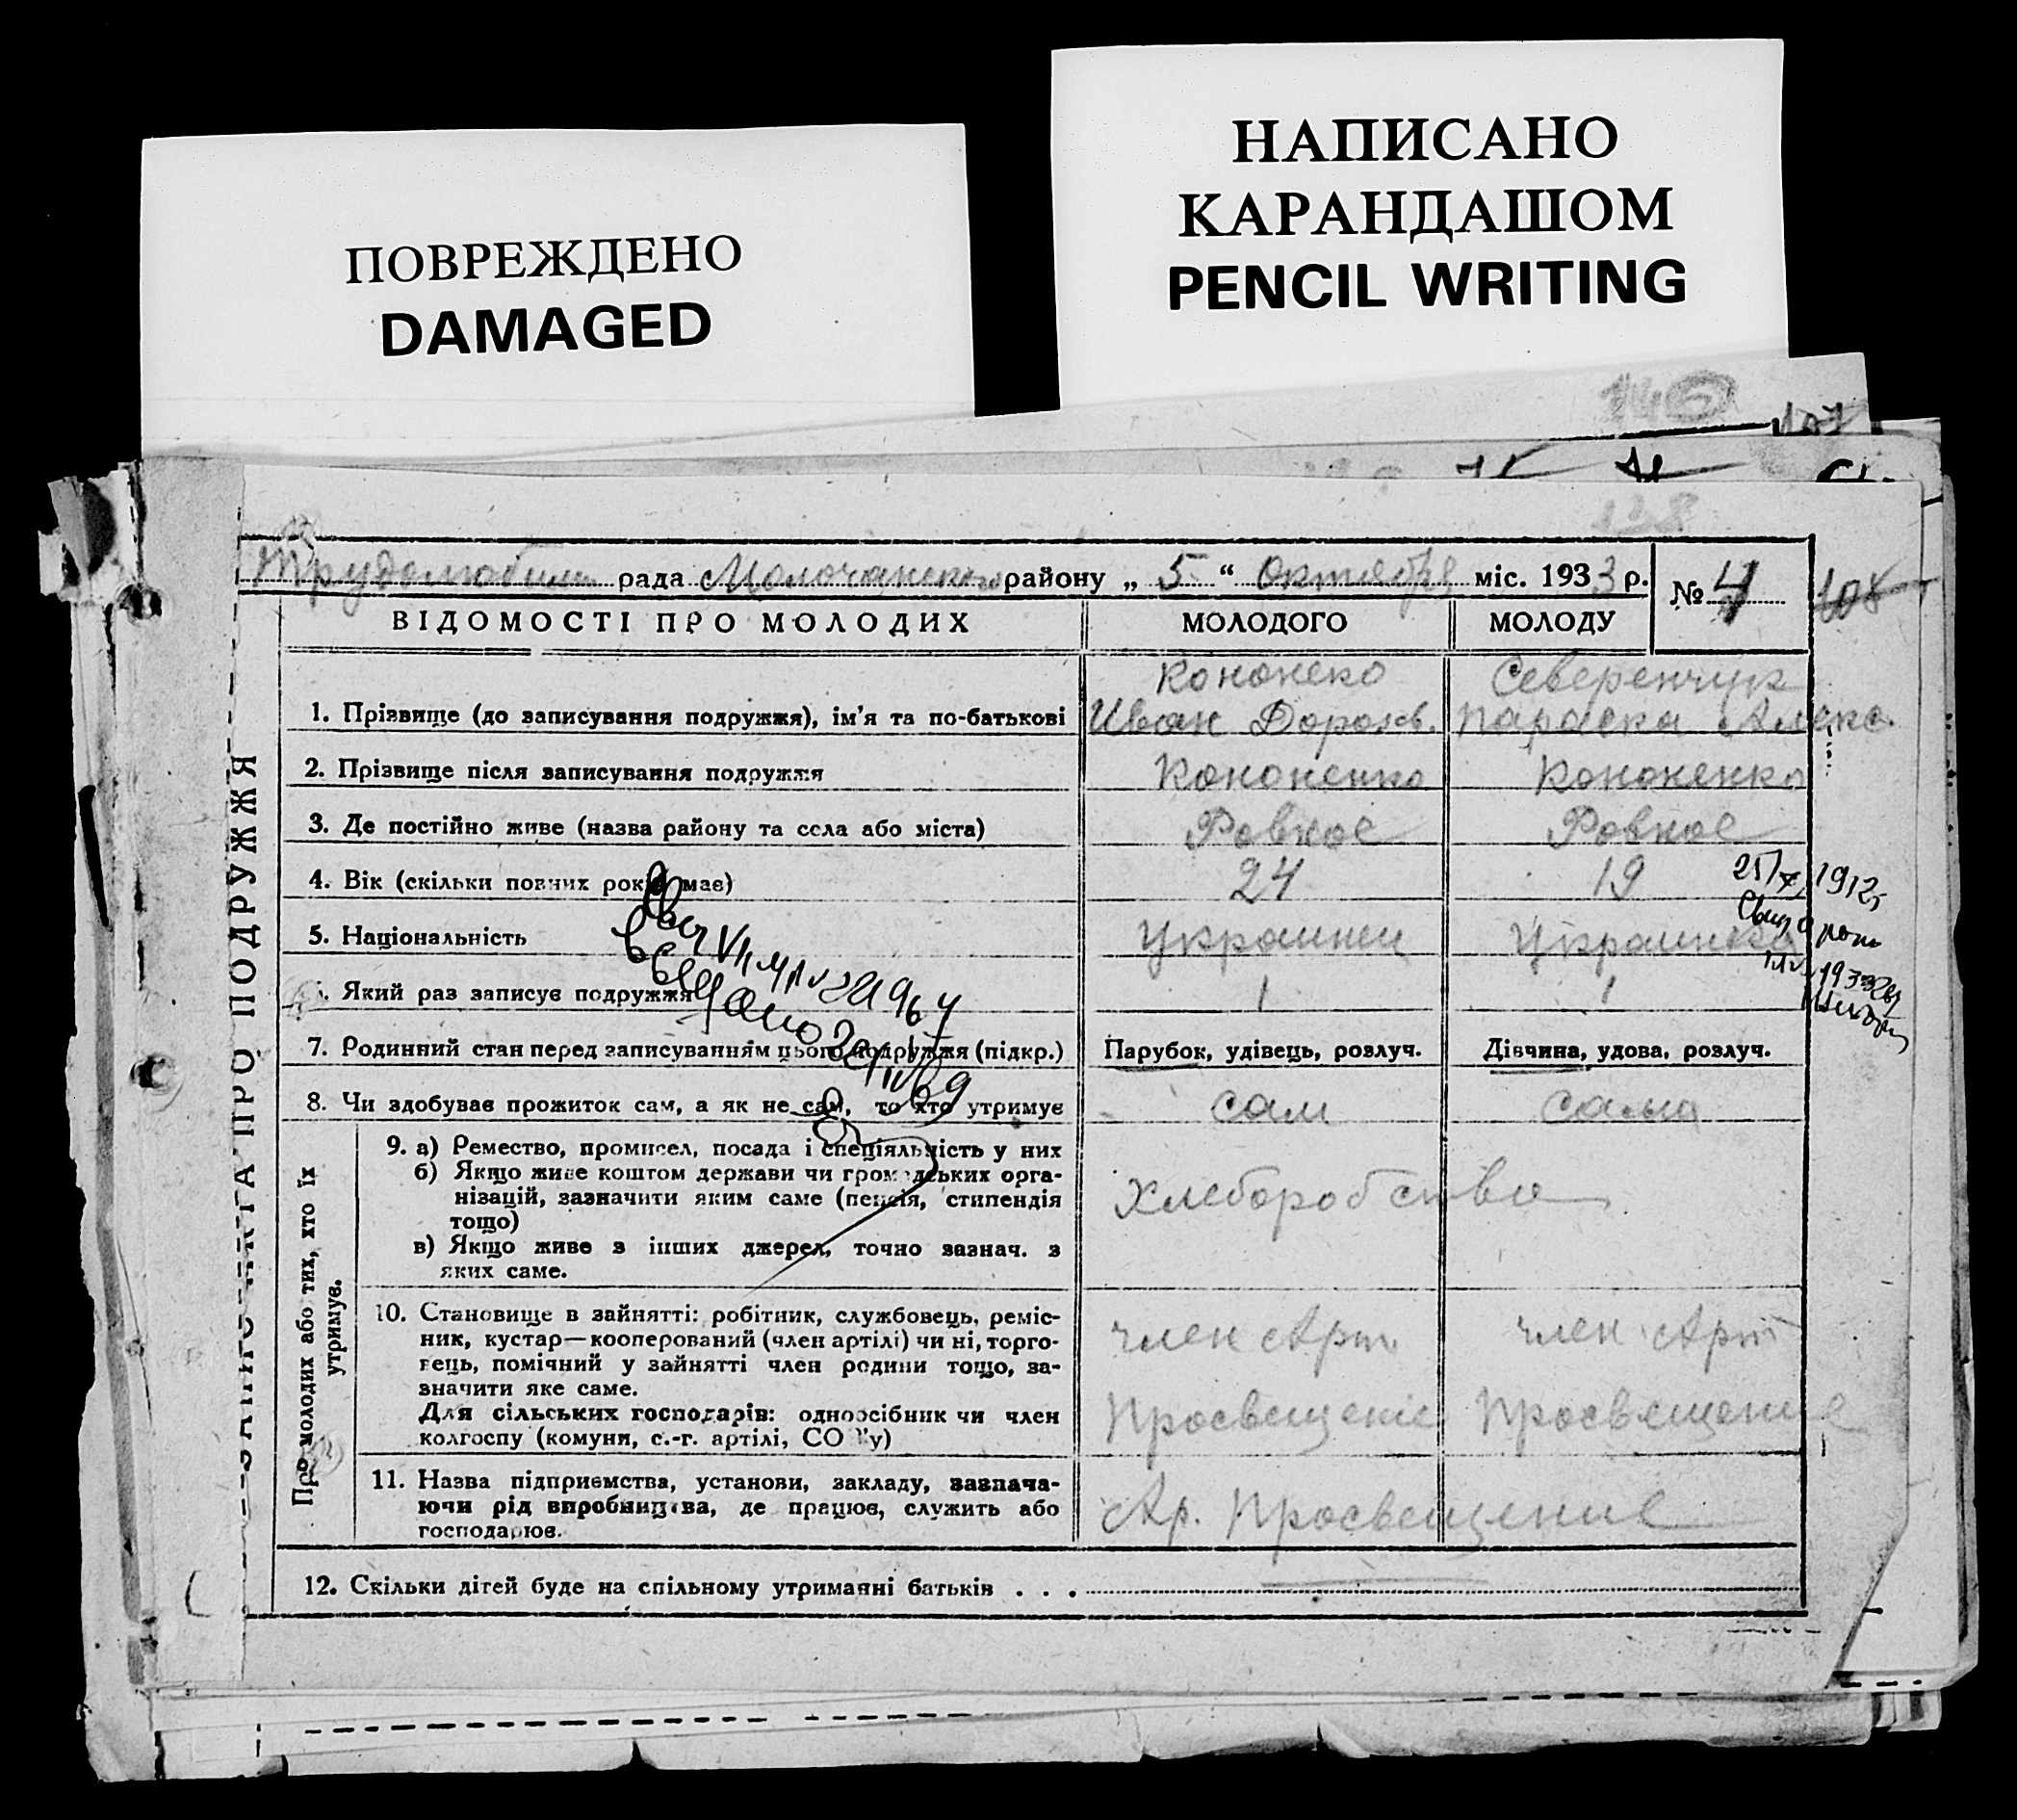 ПОВРЕЖДЕНО
DAMAGED
НАПИСАНО
КАРАНДАШОМ
PENCIL WRITING
146
107
128
рада Молочанского району „ 5 “ Октября міс. 1933 р.
№ 4
108
ВІДОМОСТІ ПРО МОЛОДИХ МОЛОДОГО МОЛОДУ
ЗАПИСЧА КАРТКА ПРО ПОДРУЖЖЯ
1. Прізвище (до записування подружжя), ім’я та по-батькові
Кононеко
Иван Дороф.
Северенчук
Параска Алекс.
2. Прізвище після записування подружжя Кононенко Кононенко
3. Де постійно живе (назва району та села або міста) Ровное Ровное
4. Вік (скільки повних років має) 24 19
1912
5. Національність Украинец Украинка
6. Який раз записує подружжя 1 1
7. Родинний стан перед записуванням цього подружжя (підкр.) Парубок, удівець, розлуч. Дівчина, удова, розлуч.
8. Чи здобуває прожиток сам, а як не сам, то хто утримує сам сама
Про молодих або тих, хто їх
утримує.
9. а) Ремество, промисел, посада і спеціяльність у них
б) Якщо живе коштом держави чи громадських орга-
нізацій, зазначити яким саме (пенсія, стипендія
тощо)
в) Якщо живе з інших джерел, точно зазнач. з
яких саме.
Хлеборобство
10. Становище в зайнятті: робітник, службовець, реміс-
ник, кустар—кооперований (член артілі) чи ні, торго-
вець, помічний у зайнятті член родини тощо, за-
значити яке саме.
Для сільських господарів: одноосібник чи член
колгоспу (комуни, с.-г. артілі, СОЗ’у)
член Арт
Просвещение
член Арт
Просвещение
11. Назва підприємства, установи, закладу, зазнача-
ючи рід виробництва, де працює, служить або
господарює.
Ар. Просвещение
12. Скільки дітей буде на спільному утриманні батьків . . .